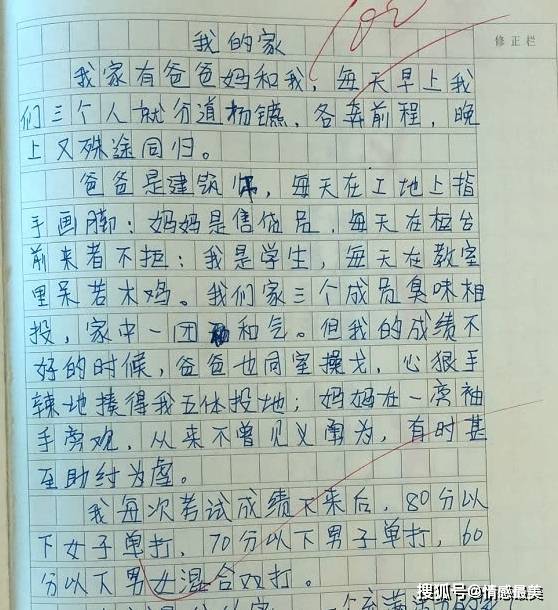 我的家
修正栏
我家有爸爸妈和我，每天早上我
们三个人就分道杨镳，各奔前程，晚
上又殊途同归。
爸爸是建筑师，每天在工地上指
手画脚；妈妈是售货员，每天在柜台
前来者不拒；我是学生，每天在教室
里呆若木鸡。我们家三个成员臭味相
投，家中一团和气。但我的成绩不
好的时候，爸爸也同室操戈，心狠手
辣地揍得我五体投地；妈妈在一旁袖
手旁观，从来不曾见义勇为，有时甚
至助纣为虐。
我每次考试成绩下来后，80分以
下女子单打，70分以下男子单打，60
分以下男女混合双打。
搜狐号@情感最美